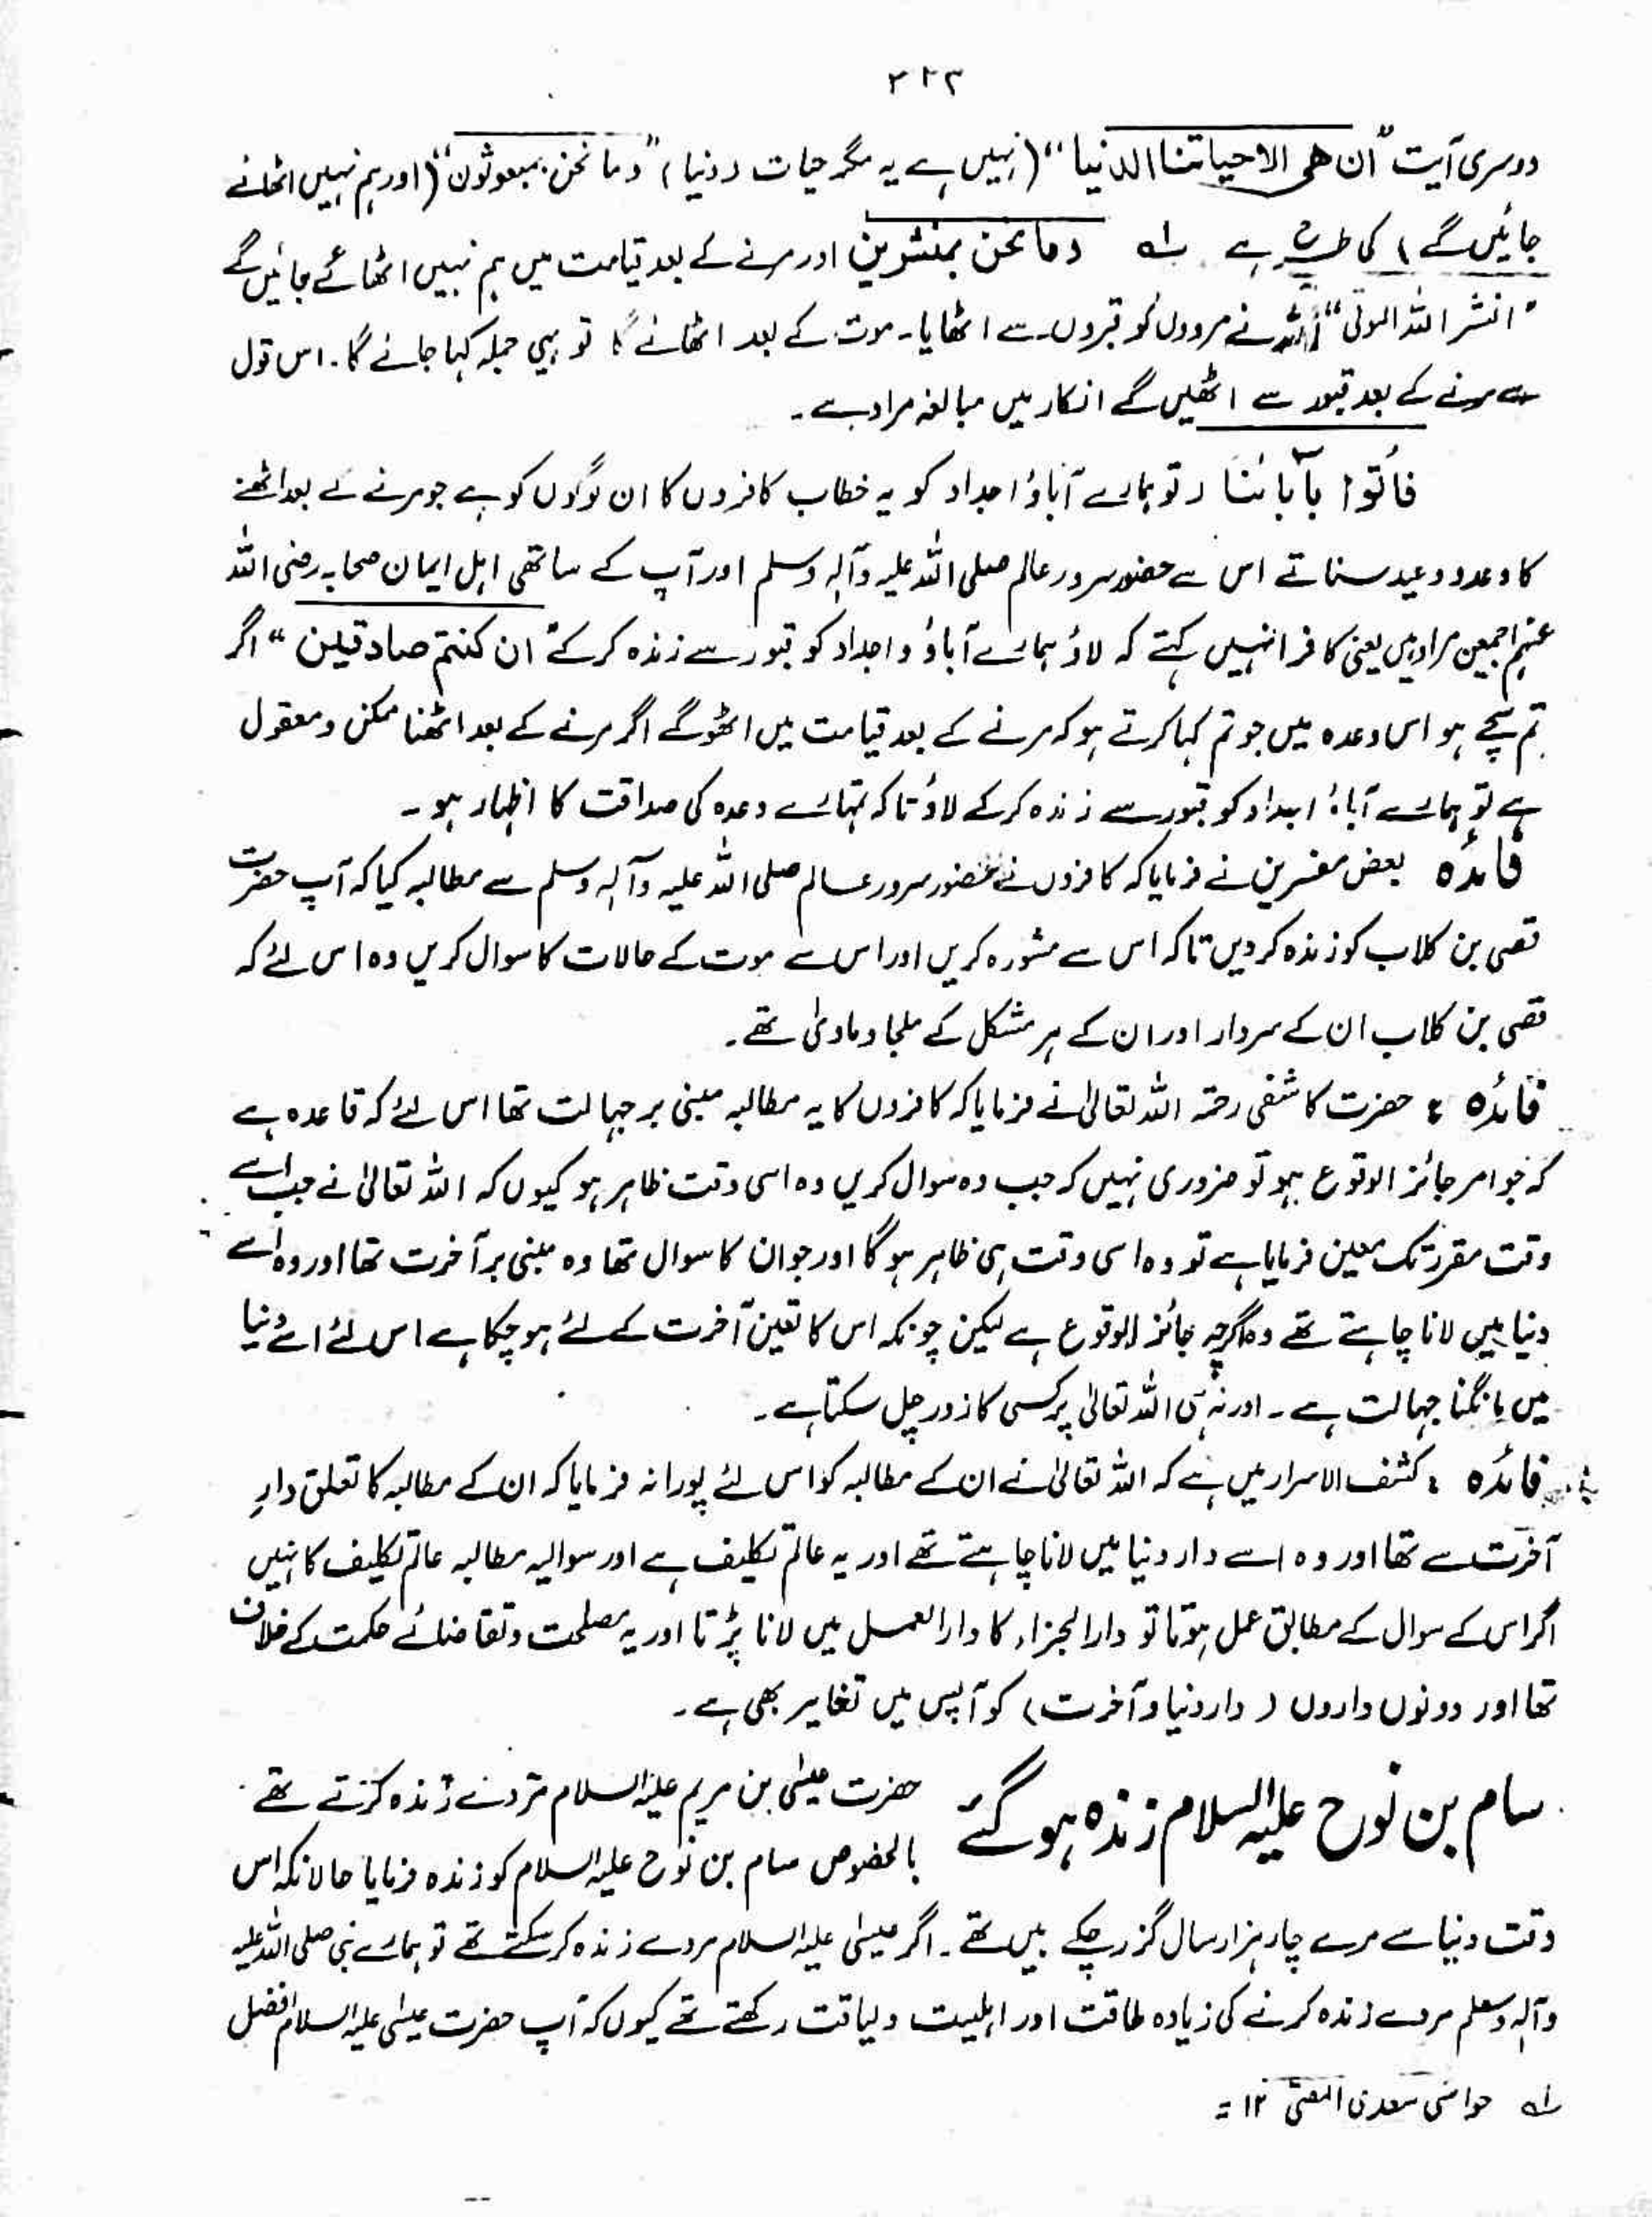 ۲۲۳
دوسری آیت "ان ھی الا حیاتنا الدنیا" (نہیں ہے یہ مگر حیات دنیا) "وما نحن بمبعوثون" (اور ہم نہیں اٹھانے
جائیں گے) کی طرح ہے ۔ لہ وما نحن بمنشرین اور مرنے کے بعد قیامت میں ہم نہیں اٹھائے جائیں گے
"انشر اللہ الموتی" اللہ نے مردوں کو قبروں سے اٹھایا۔ موت کے بعد اٹھانے گا تو یہی جملہ کہا جانے گا۔ اس قول
سے مرنے کے بعد قبور سے اٹھیں گے انکار میں مبالغہ مراد ہے۔
فأتوا بآبائنا (تو ہمارے آباؤ اجداد کو یہ خطاب کافروں کا ان لوگوں کو ہے جو مرنے کے بعد اٹھنے
کا وعدہ وعید سناتے اس سے حضور سرور عالم صلی اللہ علیہ وآلہ وسلم اور آپ کے ساتھی اہل ایمان صحابہ رضی اللہ
عنہم اجمعین مراد ہیں یعنی کافر انہیں کہتے کہ لاؤ ہمارے آباؤ واجداد کو قبور سے زندہ کر کے "ان کنتم صادقین" اگر
تم سچے ہو اس وعدہ میں جو تم کہا کرتے ہو کہ مرنے کے بعد قیامت میں اٹھو گے اگر مرنے کے بعد اٹھنا ممکن ومعقول
ہے تو ہمارے آباؤ اجداد کو قبور سے زندہ کر کے لاؤ تاکہ تمہارے وعدہ کی صداقت کا اظہار ہو ۔
فائدہ بعض مفسرین نے فرمایا کہ کافروں نے حضور سرور عالم صلی اللہ علیہ وآلہ وسلم سے مطالبہ کیا کہ آپ حضرت
قصی بن کلاب کو زندہ کر دیں تاکہ اس سے مشورہ کریں اور اس سے موت کے حالات کا سوال کریں وہ اس لئے کہ
قصی بن کلاب ان کے سردار اور ان کے ہر مشکل کے ملجا وماویٰ تھے۔
فائدہ : حضرت کاشفی رحمتہ اللہ تعالیٰ نے فرمایا کہ کافروں کا یہ مطالبہ مبنی بر جہالت تھا اس لئے کہ قاعدہ ہے
کہ جو امر جائز الوقوع ہو تو ضروری نہیں کہ جب وہ سوال کریں وہ اسی وقت ظاہر ہو کیوں کہ اللہ تعالیٰ نے جب اسے
وقت مقرر تک معین فرمایا ہے تو وہ اسی وقت ہی ظاہر ہو گا اور جو ان کا سوال تھا وہ مبنی بر آخرت تھا اور وہ اسے
دنیا میں لانا چاہتے تھے وہ اگرچہ جائز الوقوع ہے لیکن چونکہ اس کا تعین آخرت کے لئے ہو چکا ہے اس لئے اسے دنیا
میں مانگنا جہالت ہے ۔ اور نہ ہی اللہ تعالیٰ پر کسی کا زور چل سکتا ہے۔
فائدہ : کشف الاسرار میں ہے کہ اللہ تعالیٰ نے ان کے مطالبہ کو اس لئے پورا نہ فرمایا کہ ان کے مطالبہ کا تعلق دارِ
آخرت سے تھا اور وہ اسے دار دنیا میں لانا چاہتے تھے اور یہ عالم تکلیف ہے اور سوالیہ مطالبہ عالم تکلیف کا نہیں
اگر اس کے سوال کے مطابق عمل ہوتا تو دارالجزاء کا دارالعمل میں لانا پڑتا اور یہ مصلحت وتقاضائے حکمت کے خلاف
تھا اور دونوں داروں (دار دنیا وآخرت) کو آپس میں تغایر بھی ہے۔
سام بن نوح علیہ السلام زندہ ہو گئے
حضرت عیسٰی بن مریم علیہ السلام مردے زندہ کرتے تھے
بالخصوص سام بن نوح علیہ السلام کو زندہ فرمایا حالانکہ اس
وقت دنیا سے مرے چار ہزار سال گزر چکے ہیں تھے ۔ اگر عیسٰی علیہ السلام مردے زندہ کر سکتے تھے تو ہمارے نبی صلی اللہ علیہ
وآلہ وسلم مردے زندہ کرنے کی زیادہ طاقت اور اہلیت ولیاقت رکھتے تھے کیوں کہ آپ حضرت عیسٰی علیہ السلام افضل
لہ حواشی سعدی المفتی ۱۲ =